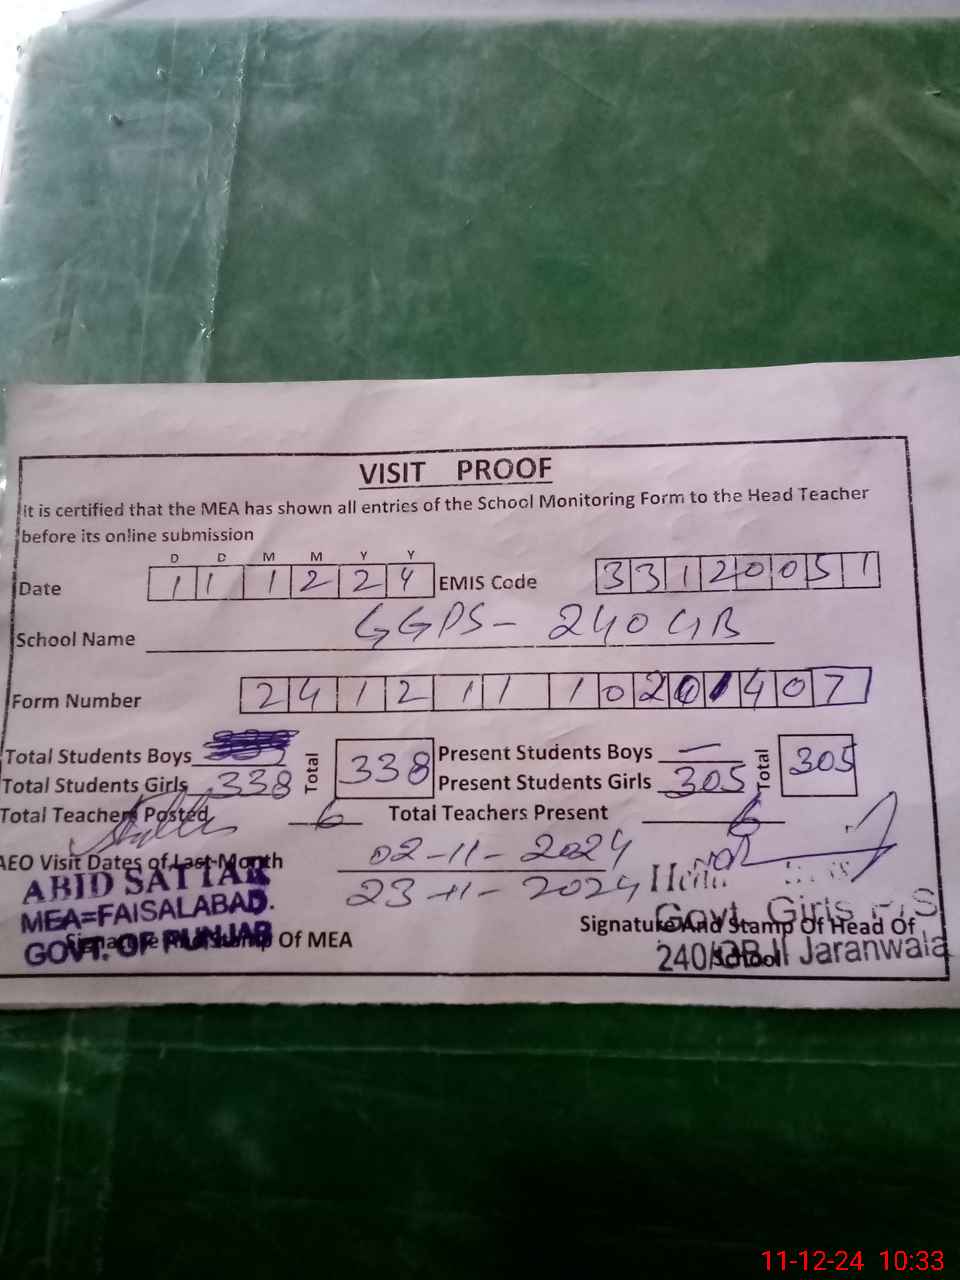 VISIT PROOF
It is certified that the MEA has shown all entries of the School Monitoring Form to the Head Teacher
before its online submission
D D M M Y Y
Date 11 12 24 EMIS Code 33120051
School Name GGPS - 240 GB
Form Number 2412111020 407
Total Students Boys Total 338 Present Students Boys — Total 305
Total Students Girls 338 Present Students Girls 305
Total Teachers Posted 6 Total Teachers Present 6
AEO Visit Dates of Last Month 02-11-2024
23-11-2024
ABID SATTAR
MEA=FAISALABAD.
GOVT. OF PUNJAB
Signature And Stamp Of MEA
Signature And Stamp Of Head Of
School
Govt. Girls P/S
240/GB II Jaranwala
11-12-24 10:33